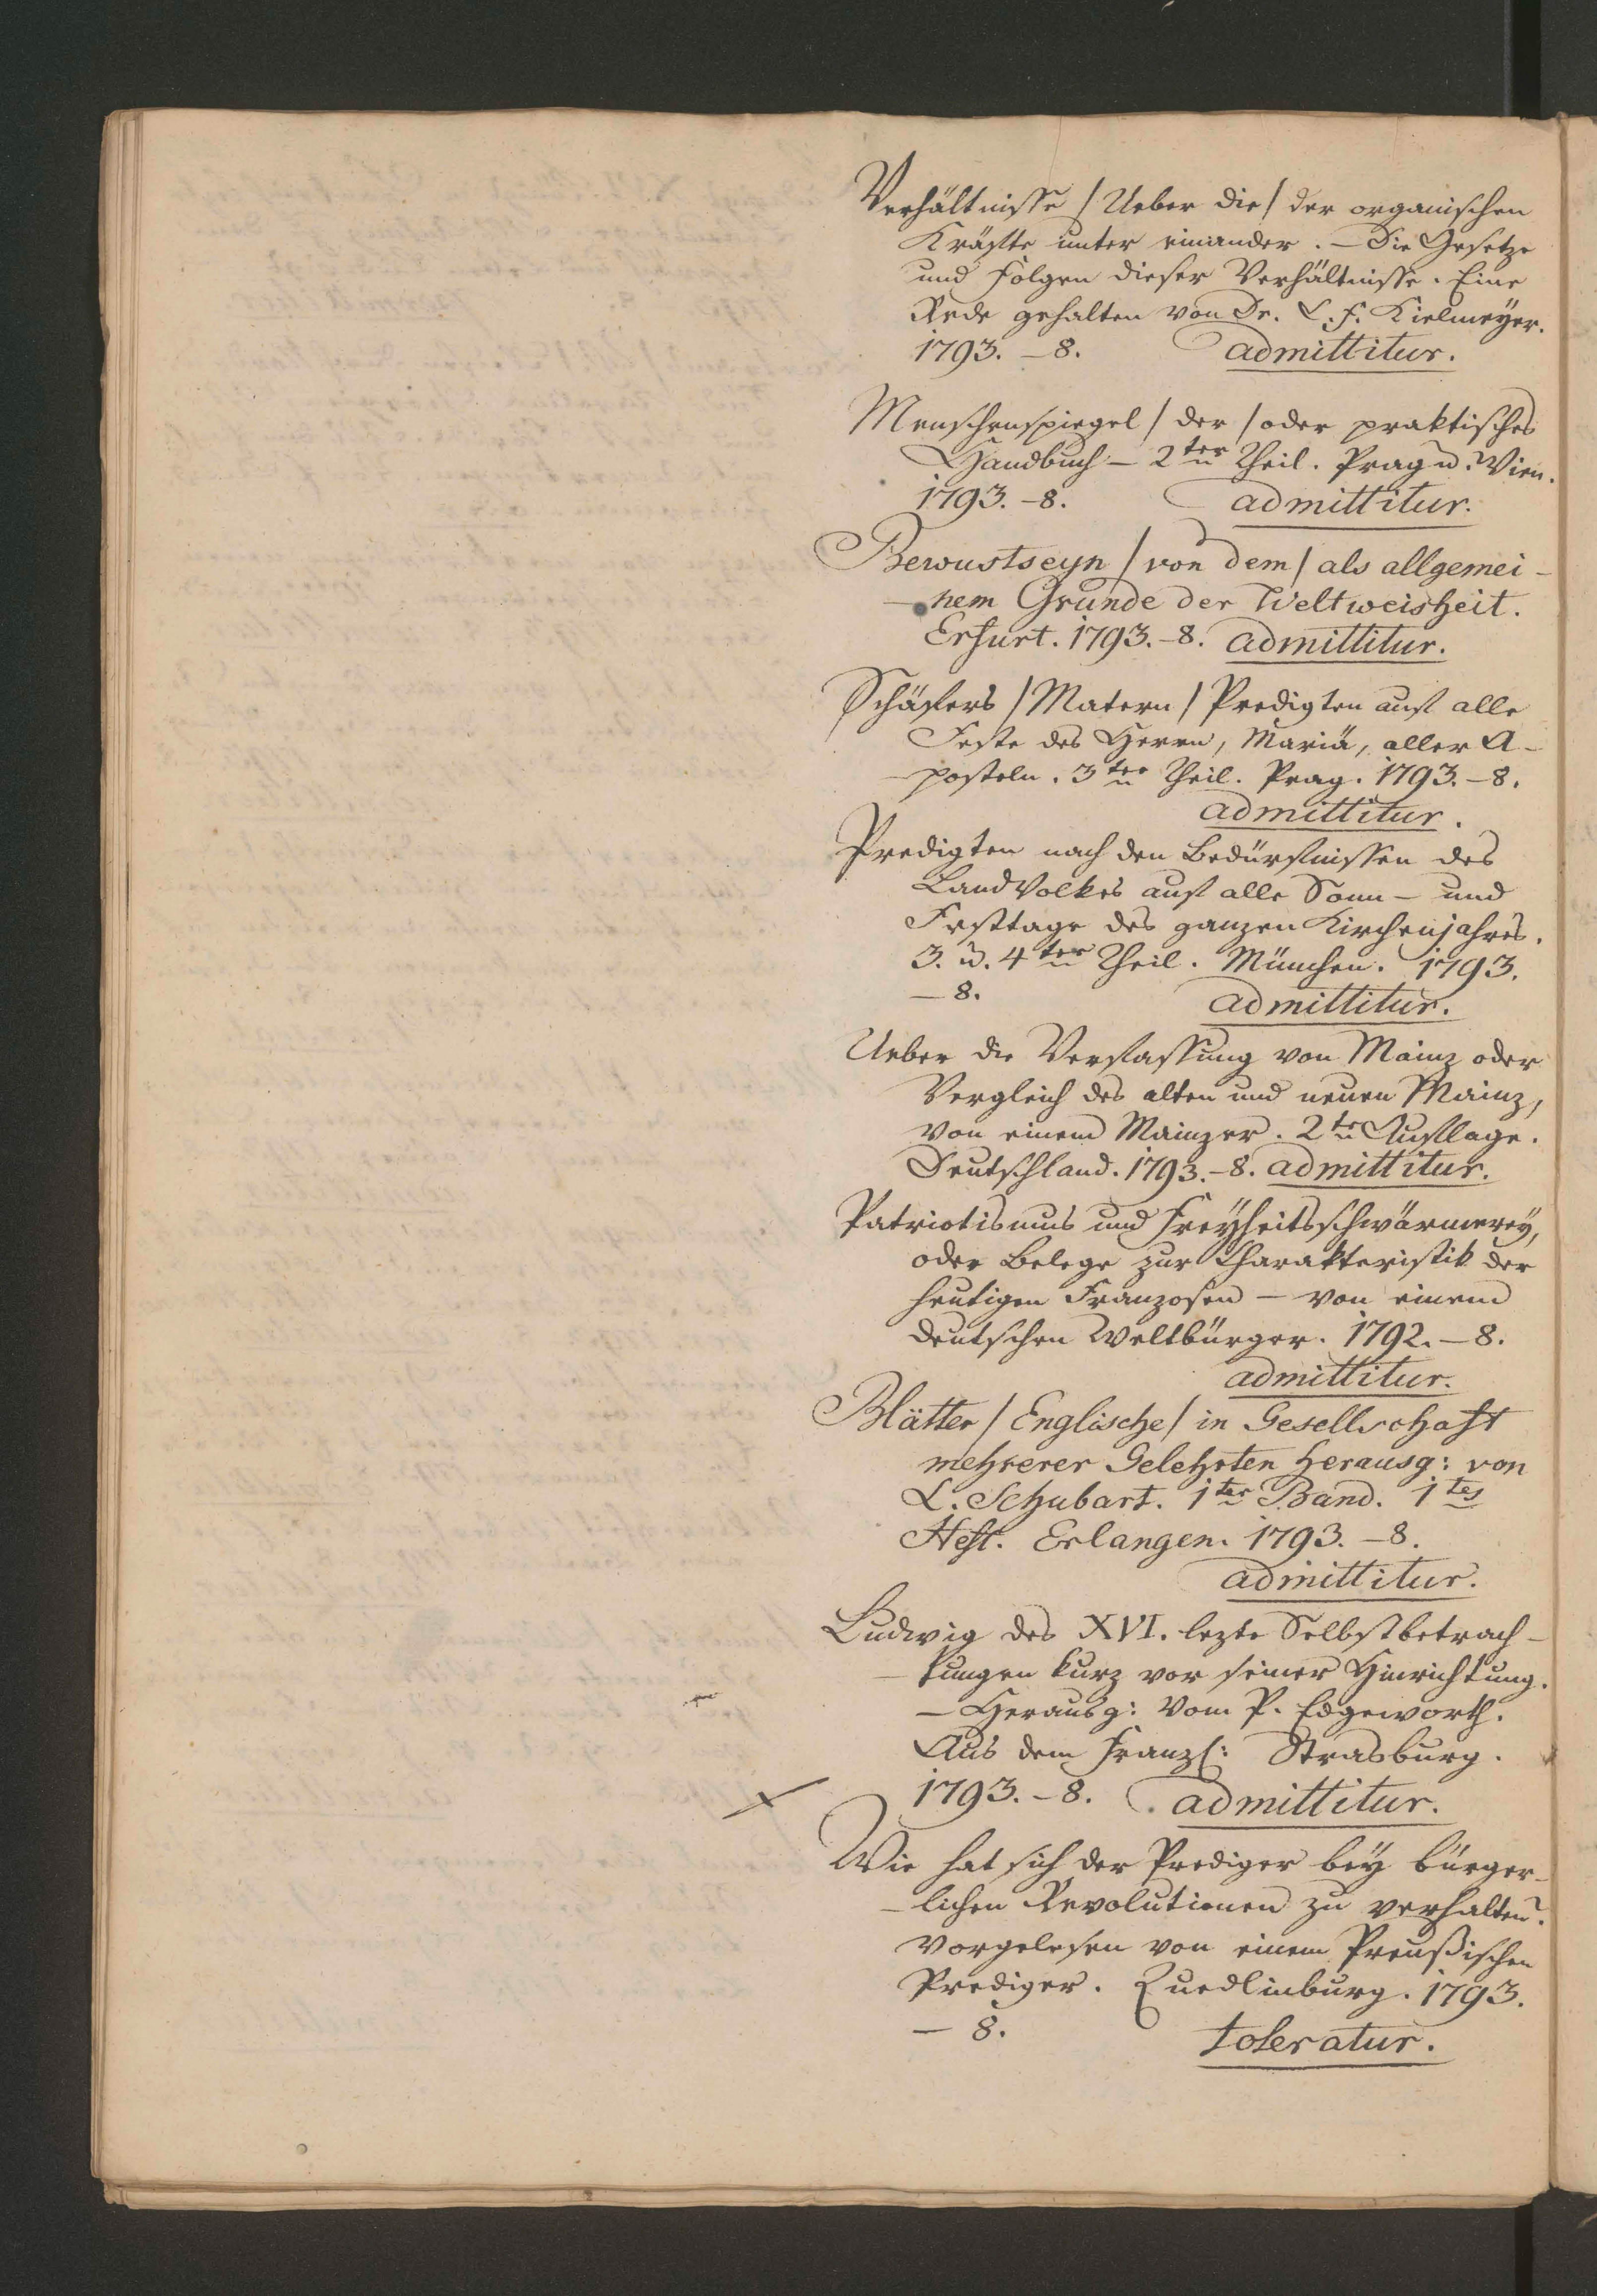 Verhältnisse /Ueber die/ der organischen
Kräfte unter einander. – Die Gesetze
und Folgen dieser Verhältnisse. Eine
Rede gehalten von Dr. C. F. Kielmeyer.
1793. – 8. admittitur.
Menschenspiegel /der/ oder praktisches
Handbuch – 2ter Theil. Prag u. Wien.
1793. – 8. admittitur.
Bewustseyn /von dem/ als allgemei-
-nem Grunde der Weltweisheit.
Erfurt. 1793. – 8. admittitur.
Schäfers /Matern/ Predigten auf alle
Feste des Herrn, Mariä, aller A-
-posteln. 3ter Theil. Prag. 1793. – 8.
admittitur.
Predigten nach den Bedürfnissen des
Landvolkes auf alle Sonn- und
Festtage des ganzen Kirchenjahrs.
3. u. 4ter Theil. München. 1793.
– 8. admittitur.
Ueber die Verfassung von Mainz oder
Vergleich des alten und neuen Mainz,
von einem Mainzer. 2te Auflage.
Deutschland. 1793. – 8. admittitur.
Patriotismus und Freyheitsschwärmerey,
oder Belege zur Charakteristik der
heutigen Franzosen – von einem
deutschen Weltbürger. 1792. – 8.
admittitur.
Blätter /Englische/ in Gesellschaft
mehrerer Gelehrten herausg: von
L. Schubart. 1ter Band. 1tes
Heft. Erlangen. 1793. – 8.
admittitur.
Ludwig des XVI. lezte Selbstbetrach-
-tungen kurz vor seiner Hinrichtung.
– Herausg: vom P. Edgeworth.
Aus dem Franzs: Strasburg.
1793. – 8. admittitur.
Wie hat sich der Prediger bey bürger-
-lichen Revolutionen zu verhalten?
vorgelesen von einem Preußischen
Prediger. Quedlinburg. 1793.
– 8. toleratur.